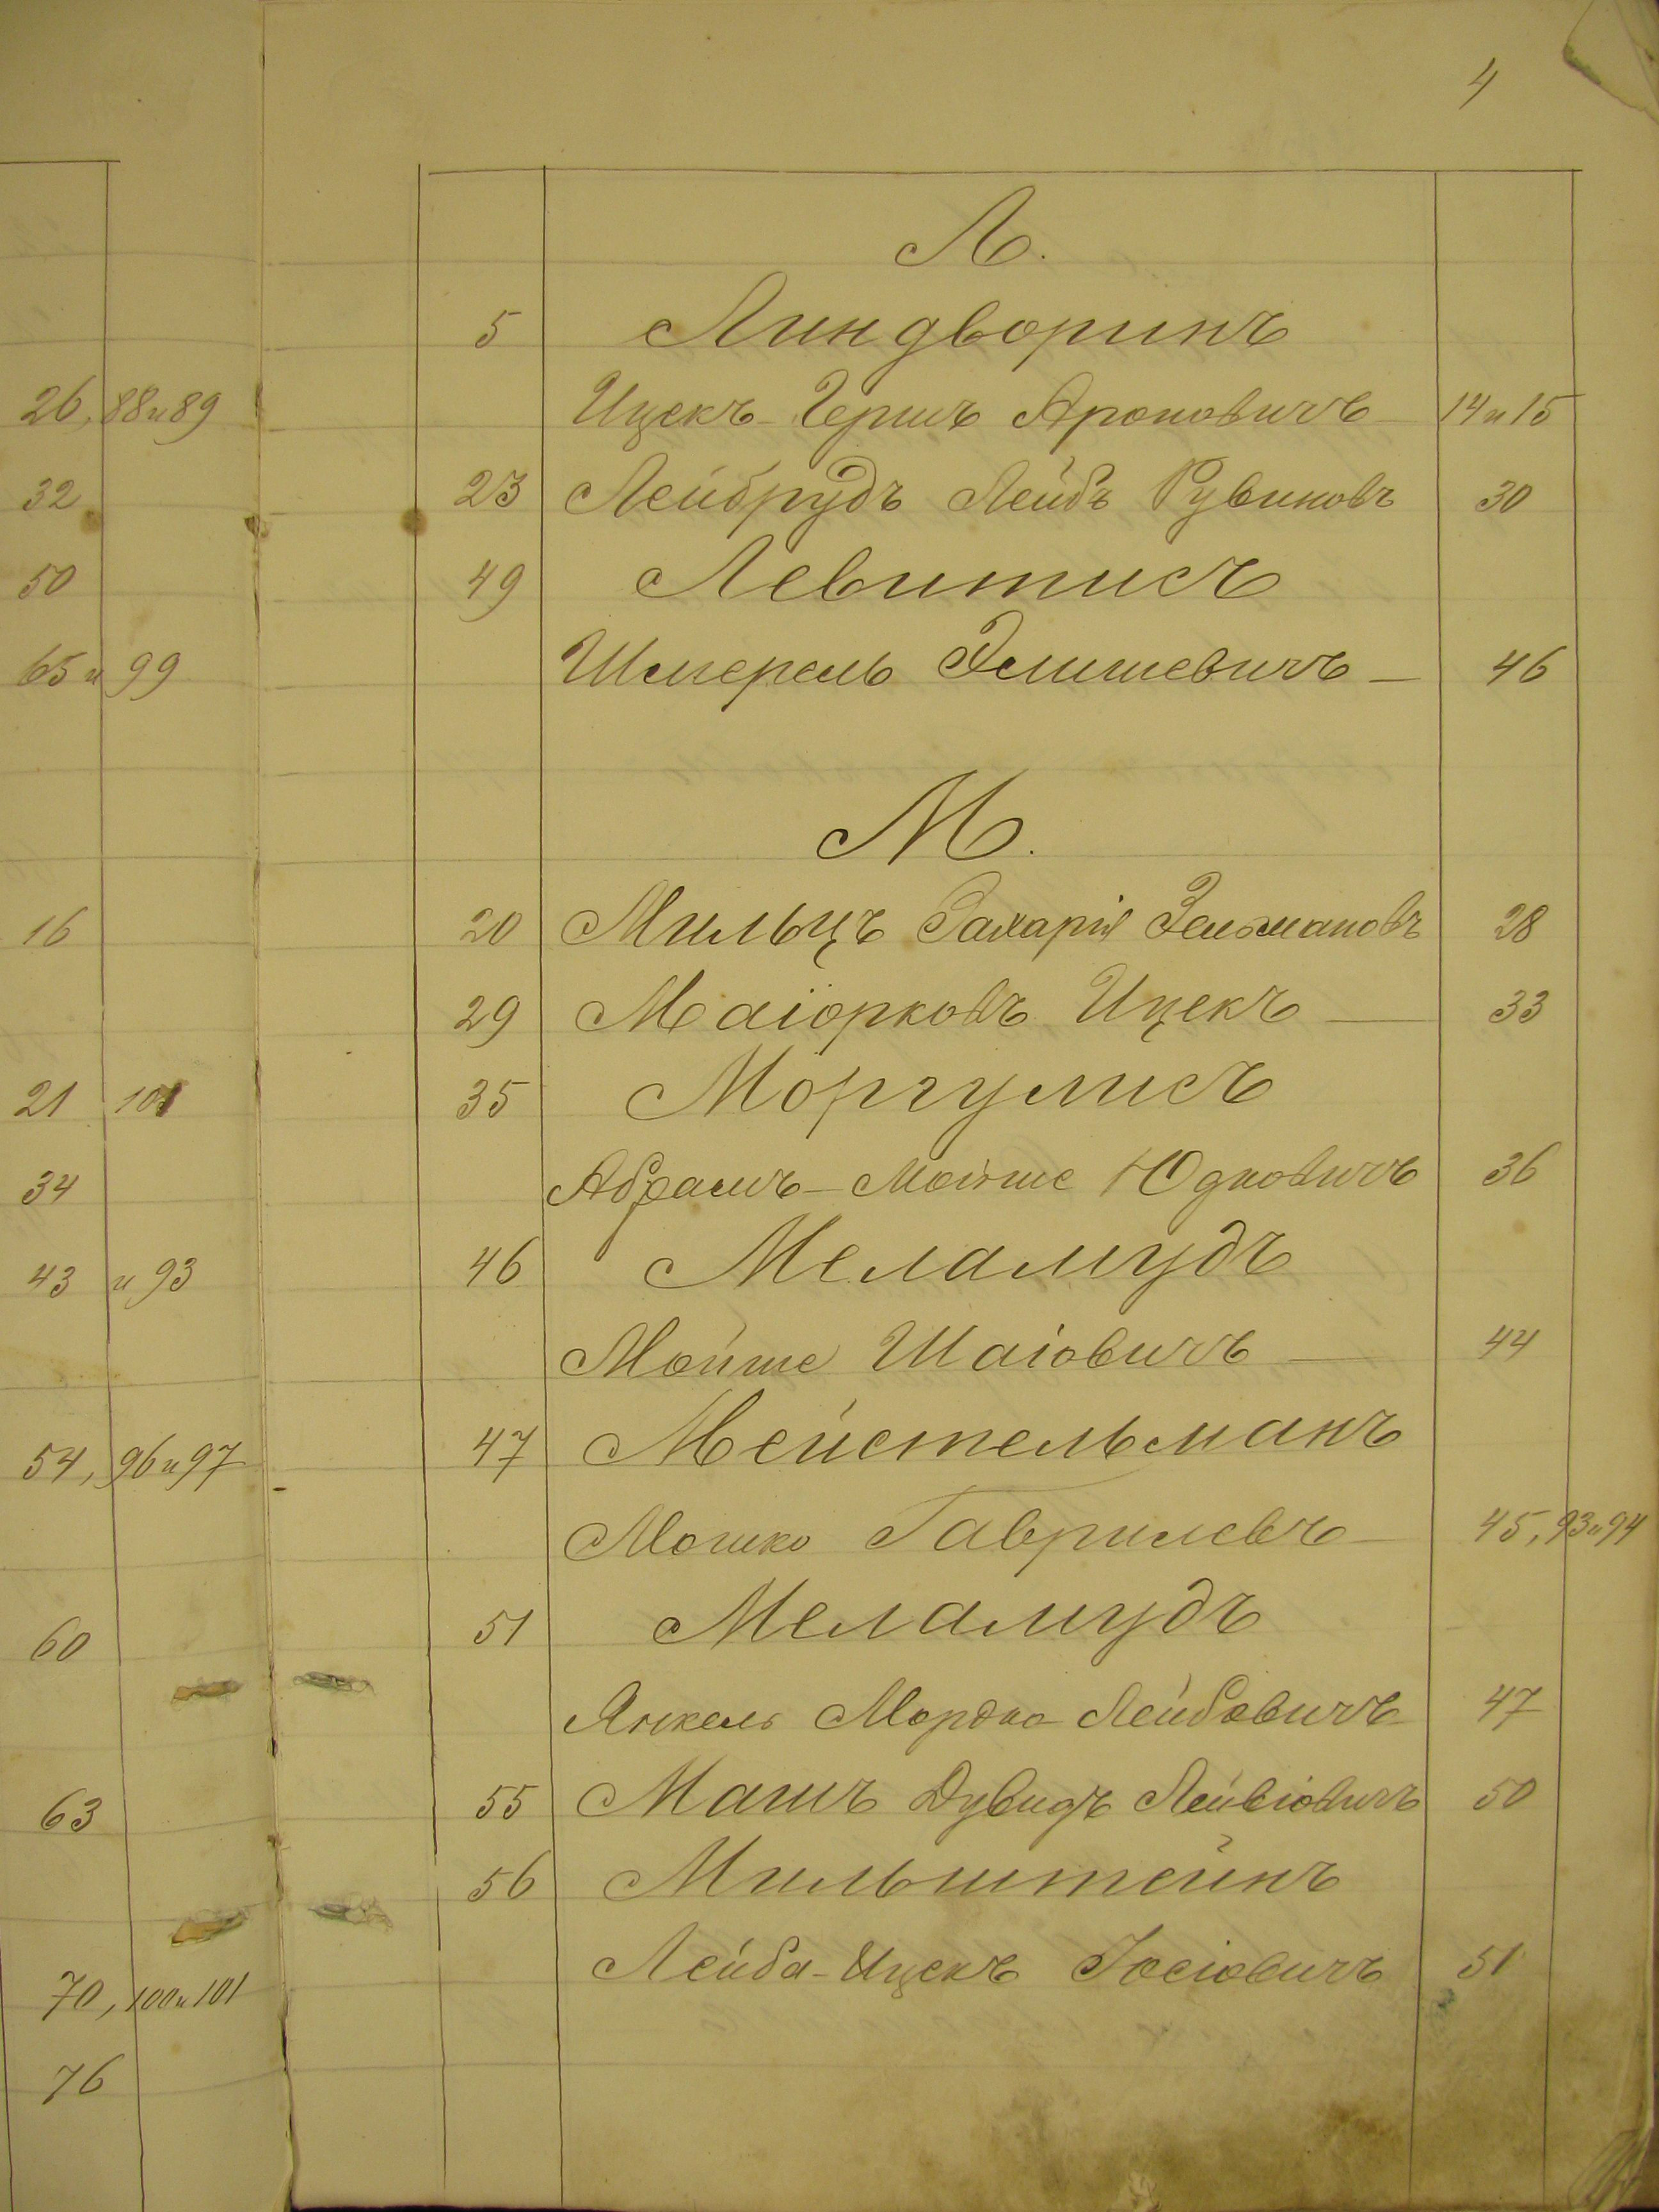 26, 88 и 89
32
50
65 и 99
16
21 101
34
43 и 93
54, 96 и 97
60
63
70, 100 и 101
76
4
Л.
5 Линдворинъ
Ицекъ-Гершъ Ароновичъ 14 и 15
23 Лейбрудъ Лейбъ Рувиновъ 30
49 Левитисъ
Шмерель Элишевичъ — 46
М.
20 Мильцъ Захарія Зельмановъ 28
29 Маіорковъ Ицекъ — 33
35 Моргулисъ
Абрамъ-Мойше Юдковичъ 36
46 Меламудъ
Мойше Шаіовичъ — 44
47 Мейстельманъ
Мошко Гаврилевъ — 45, 93 и 94
51 Меламудъ
Янкель Мордко Лейбовичъ 47
55 Машъ Дувидъ Лейвіовичъ 50
56 Мильштейнъ
Лейба-Ицекъ Іосіовичъ 51